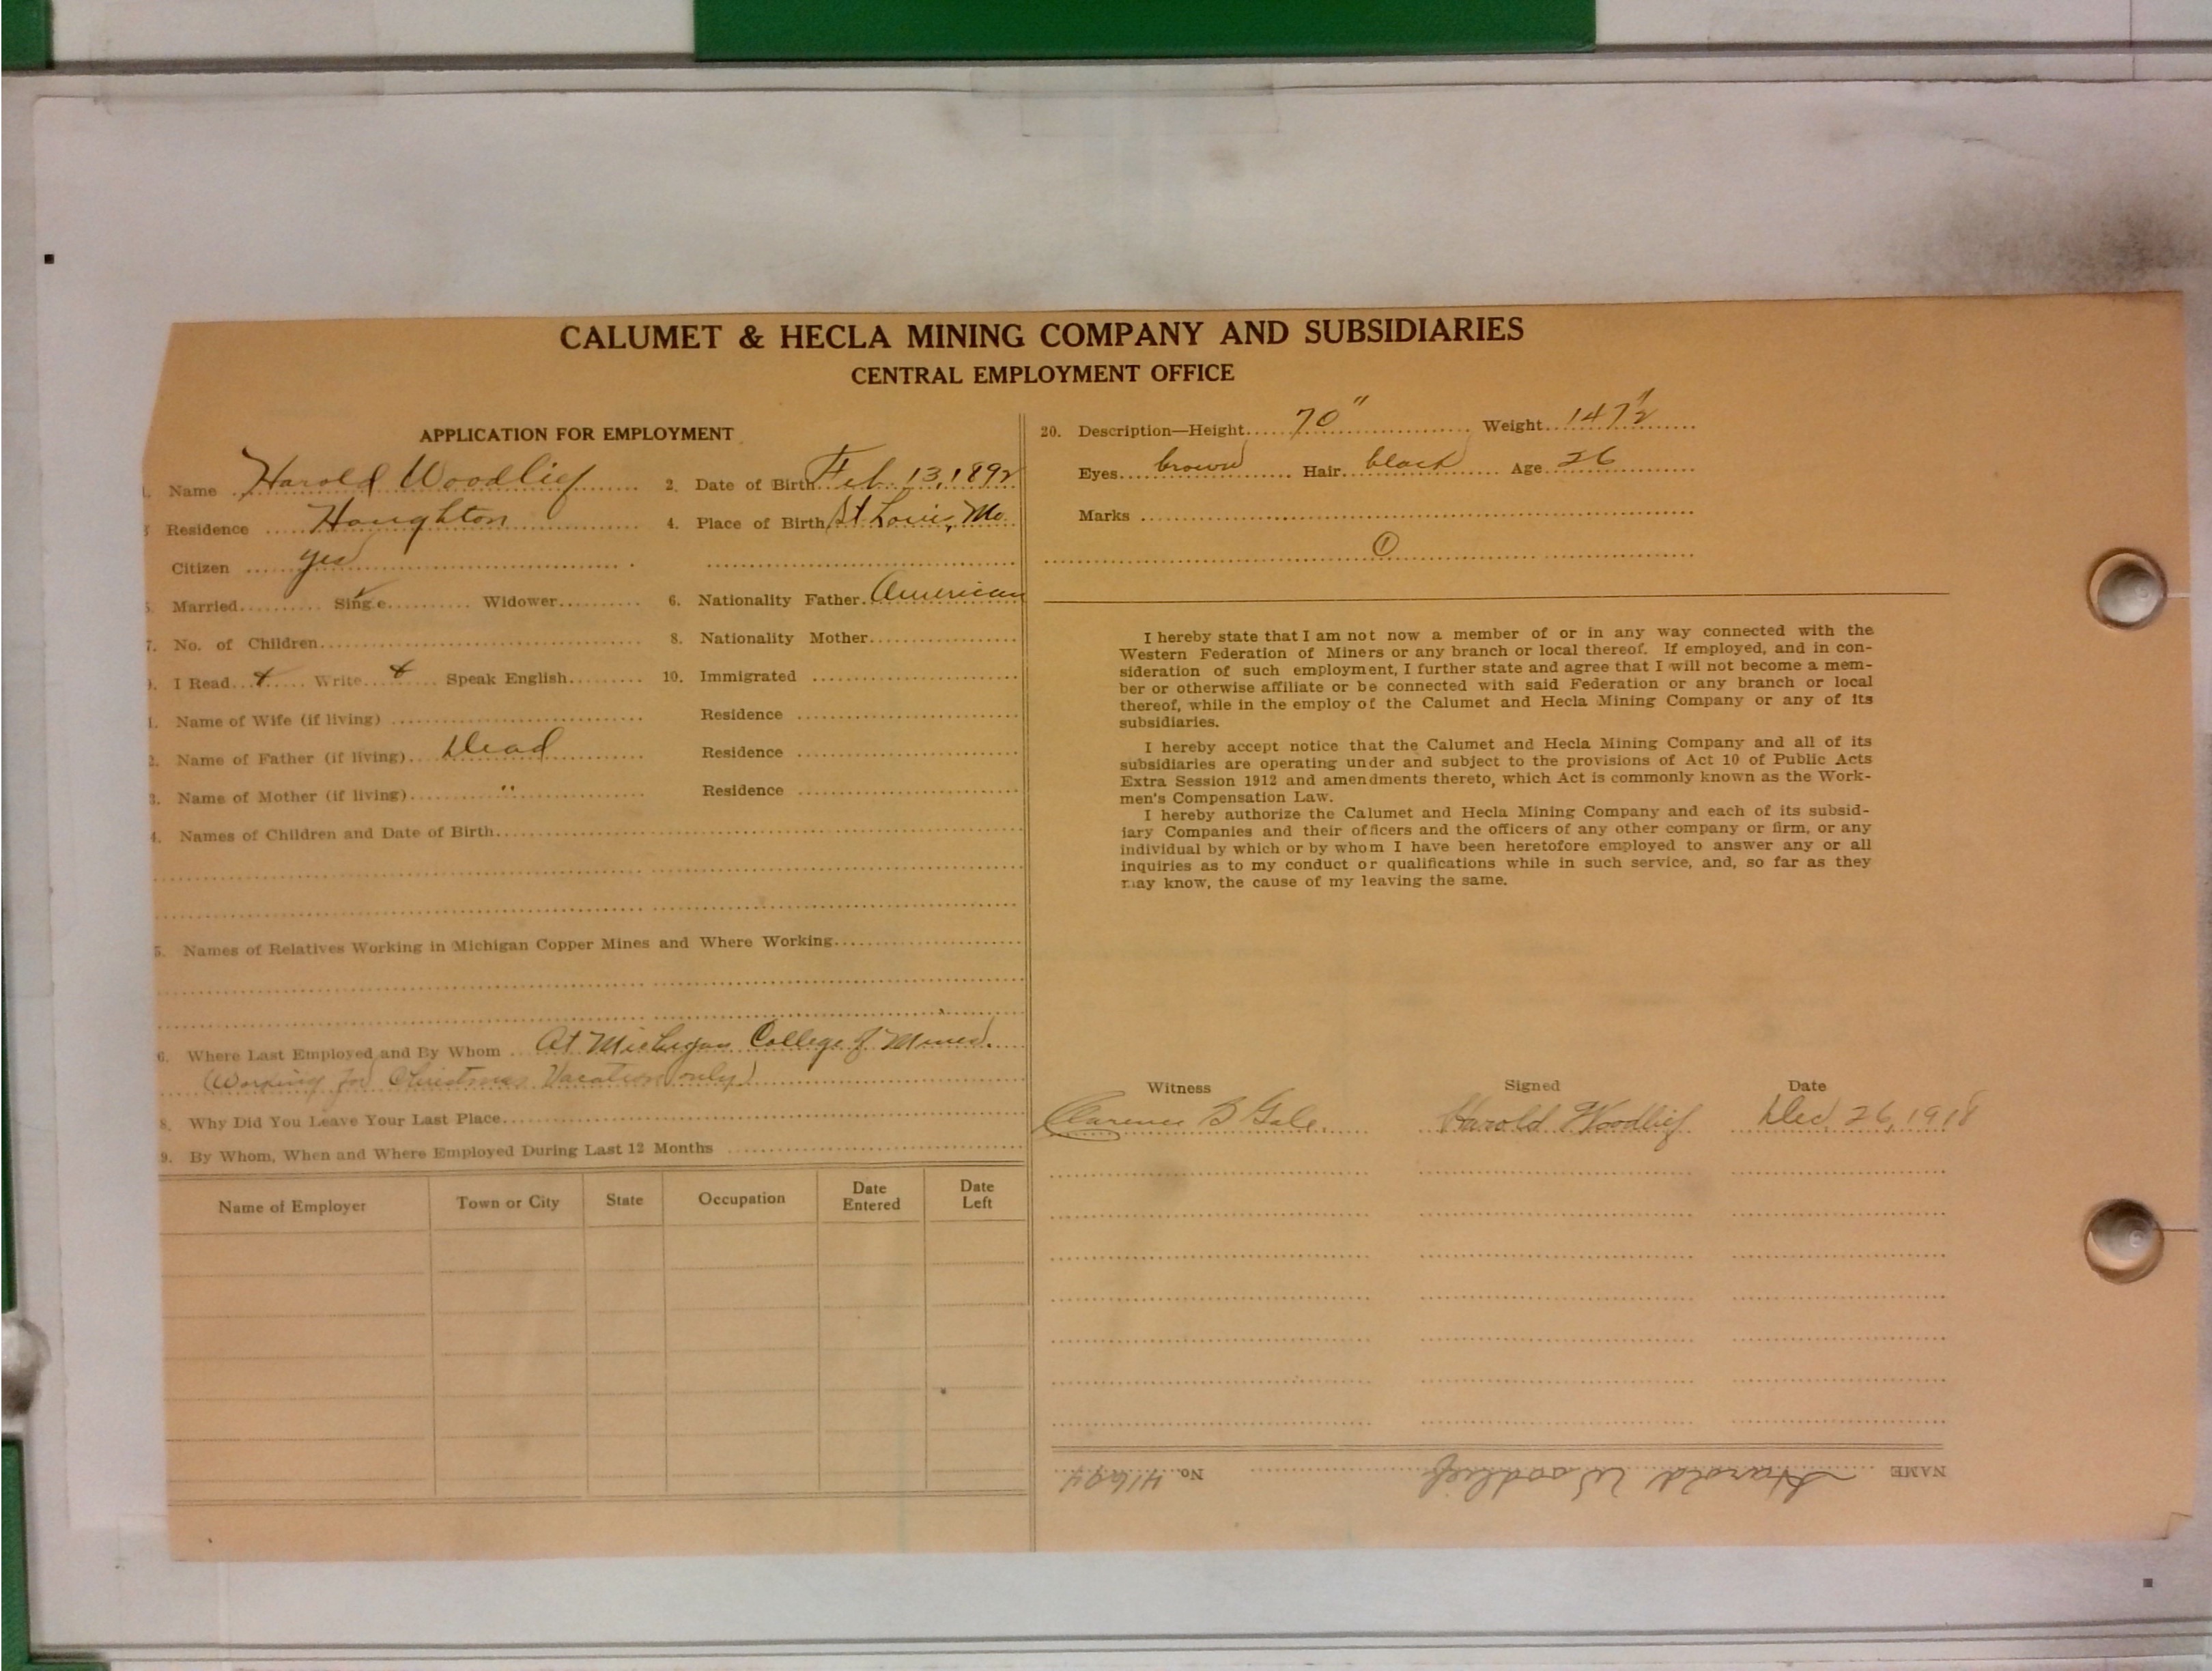 CALUMET & HECLA MINING COMPANY AND SUBSIDIARIES
CENTRAL EMPLOYMENT OFFICE
APPLICATION FOR EMPLOYMENT
1. Name Harold Woodlief 2. Date of Birth Feb. 13, 1892
3 Residence Houghton 4. Place of Birth St Louis, Mo.
Citizen yes
5. Married Single Widower 6. Nationality Father American
7. No. of Children 8. Nationality Mother
9. I Read x Write x Speak English 10. Immigrated
1. Name of Wife (if living) Residence
2. Name of Father (if living) Dead Residence
3. Name of Mother (if living) " Residence
4. Names of Children and Date of Birth
5. Names of Relatives Working in Michigan Copper Mines and Where Working
6. Where Last Employed and By Whom At Michigan College of Mines.
(Working for Christmas Vacation only)
8. Why Did You Leave Your Last Place
9. By Whom, When and Where Employed During Last 12 Months
Name of Employer Town or City State Occupation Date Entered Date Left
20. Description—Height 70" Weight 147½
Eyes brown Hair black Age 26
Marks
1
I hereby state that I am not now a member of or in any way connected with the
Western Federation of Miners or any branch or local thereof. If employed, and in con-
sideration of such employment, I further state and agree that I will not become a mem-
ber or otherwise affiliate or be connected with said Federation or any branch or local
thereof, while in the employ of the Calumet and Hecla Mining Company or any of its
subsidiaries.
I hereby accept notice that the Calumet and Hecla Mining Company and all of its
subsidiaries are operating under and subject to the provisions of Act 10 of Public Acts
Extra Session 1912 and amendments thereto, which Act is commonly known as the Work-
men's Compensation Law.
I hereby authorize the Calumet and Hecla Mining Company and each of its subsid-
iary Companies and their officers and the officers of any other company or firm, or any
individual by which or by whom I have been heretofore employed to answer any or all
inquiries as to my conduct or qualifications while in such service, and, so far as they
may know, the cause of my leaving the same.
Witness Signed Date
Clarence B Gale. Harold Woodlief Dec. 26, 1918
NAME Harold Woodlief No. 41694